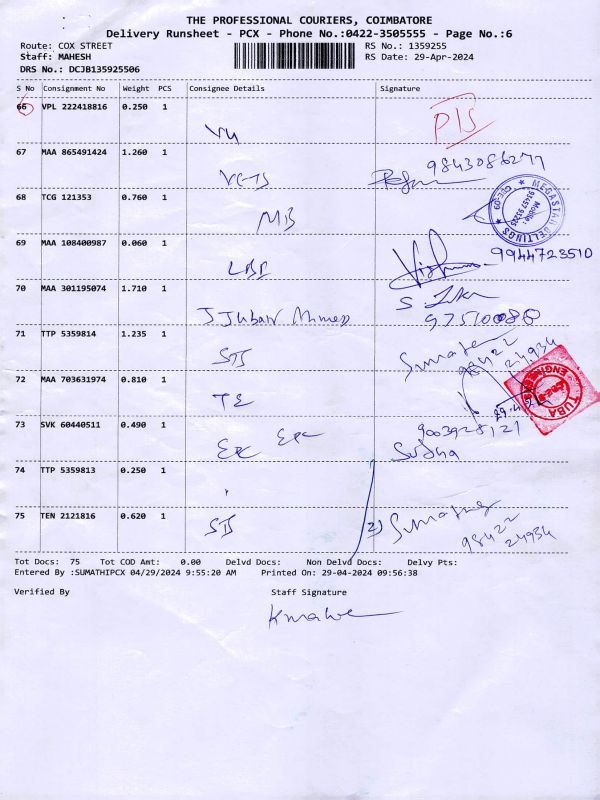 THE PROFESSIONAL COURIERS, COIMBATORE
Delivery Runsheet - PCX - Phone No.:0422-3505555 - Page No.:6
Route: COX STREET RS No.: 1359255
Staff: MAHESH RS Date: 29-Apr-2024
DRS No.: DCJB135925506
S No Consignment No Weight PCS Consignee Details Signature
66 VPL 222418816 0.250 1
67 MAA 865491424 1.260 1
9843086277
68 TCG 121353 0.760 1
MEGASTAR BELTINGS
Mobile:
69 MAA 108400987 0.060 1
9944723510
70 MAA 301195074 1.710 1
71 TTP 5359814 1.235 1
STS
98422
24934
72 MAA 703631974 0.810 1
TE
TUBA ENGINEERS
73 SVK 60440511 0.490 1
EPC EPC
9003928121
Sudha
74 TTP 5359813 0.250 1
75 TEN 2121816 0.620 1
STS
98422
24934
Tot Docs: 75 Tot COD Amt: 0.00 Delvd Docs: Non Delvd Docs: Delvy Pts:
Entered By :SUMATHIPCX 04/29/2024 9:55:20 AM Printed On: 29-04-2024 09:56:38
Verified By Staff Signature